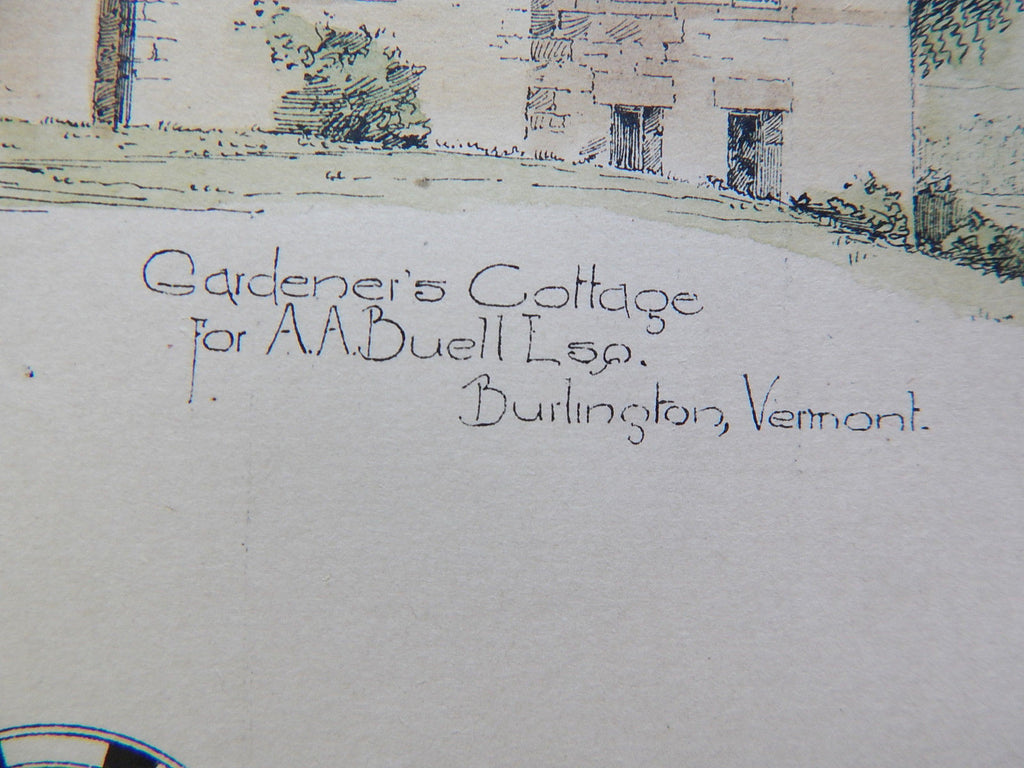 Gardener's Cottage
for A.A.Buell Esq.
Burlington, Vermont.